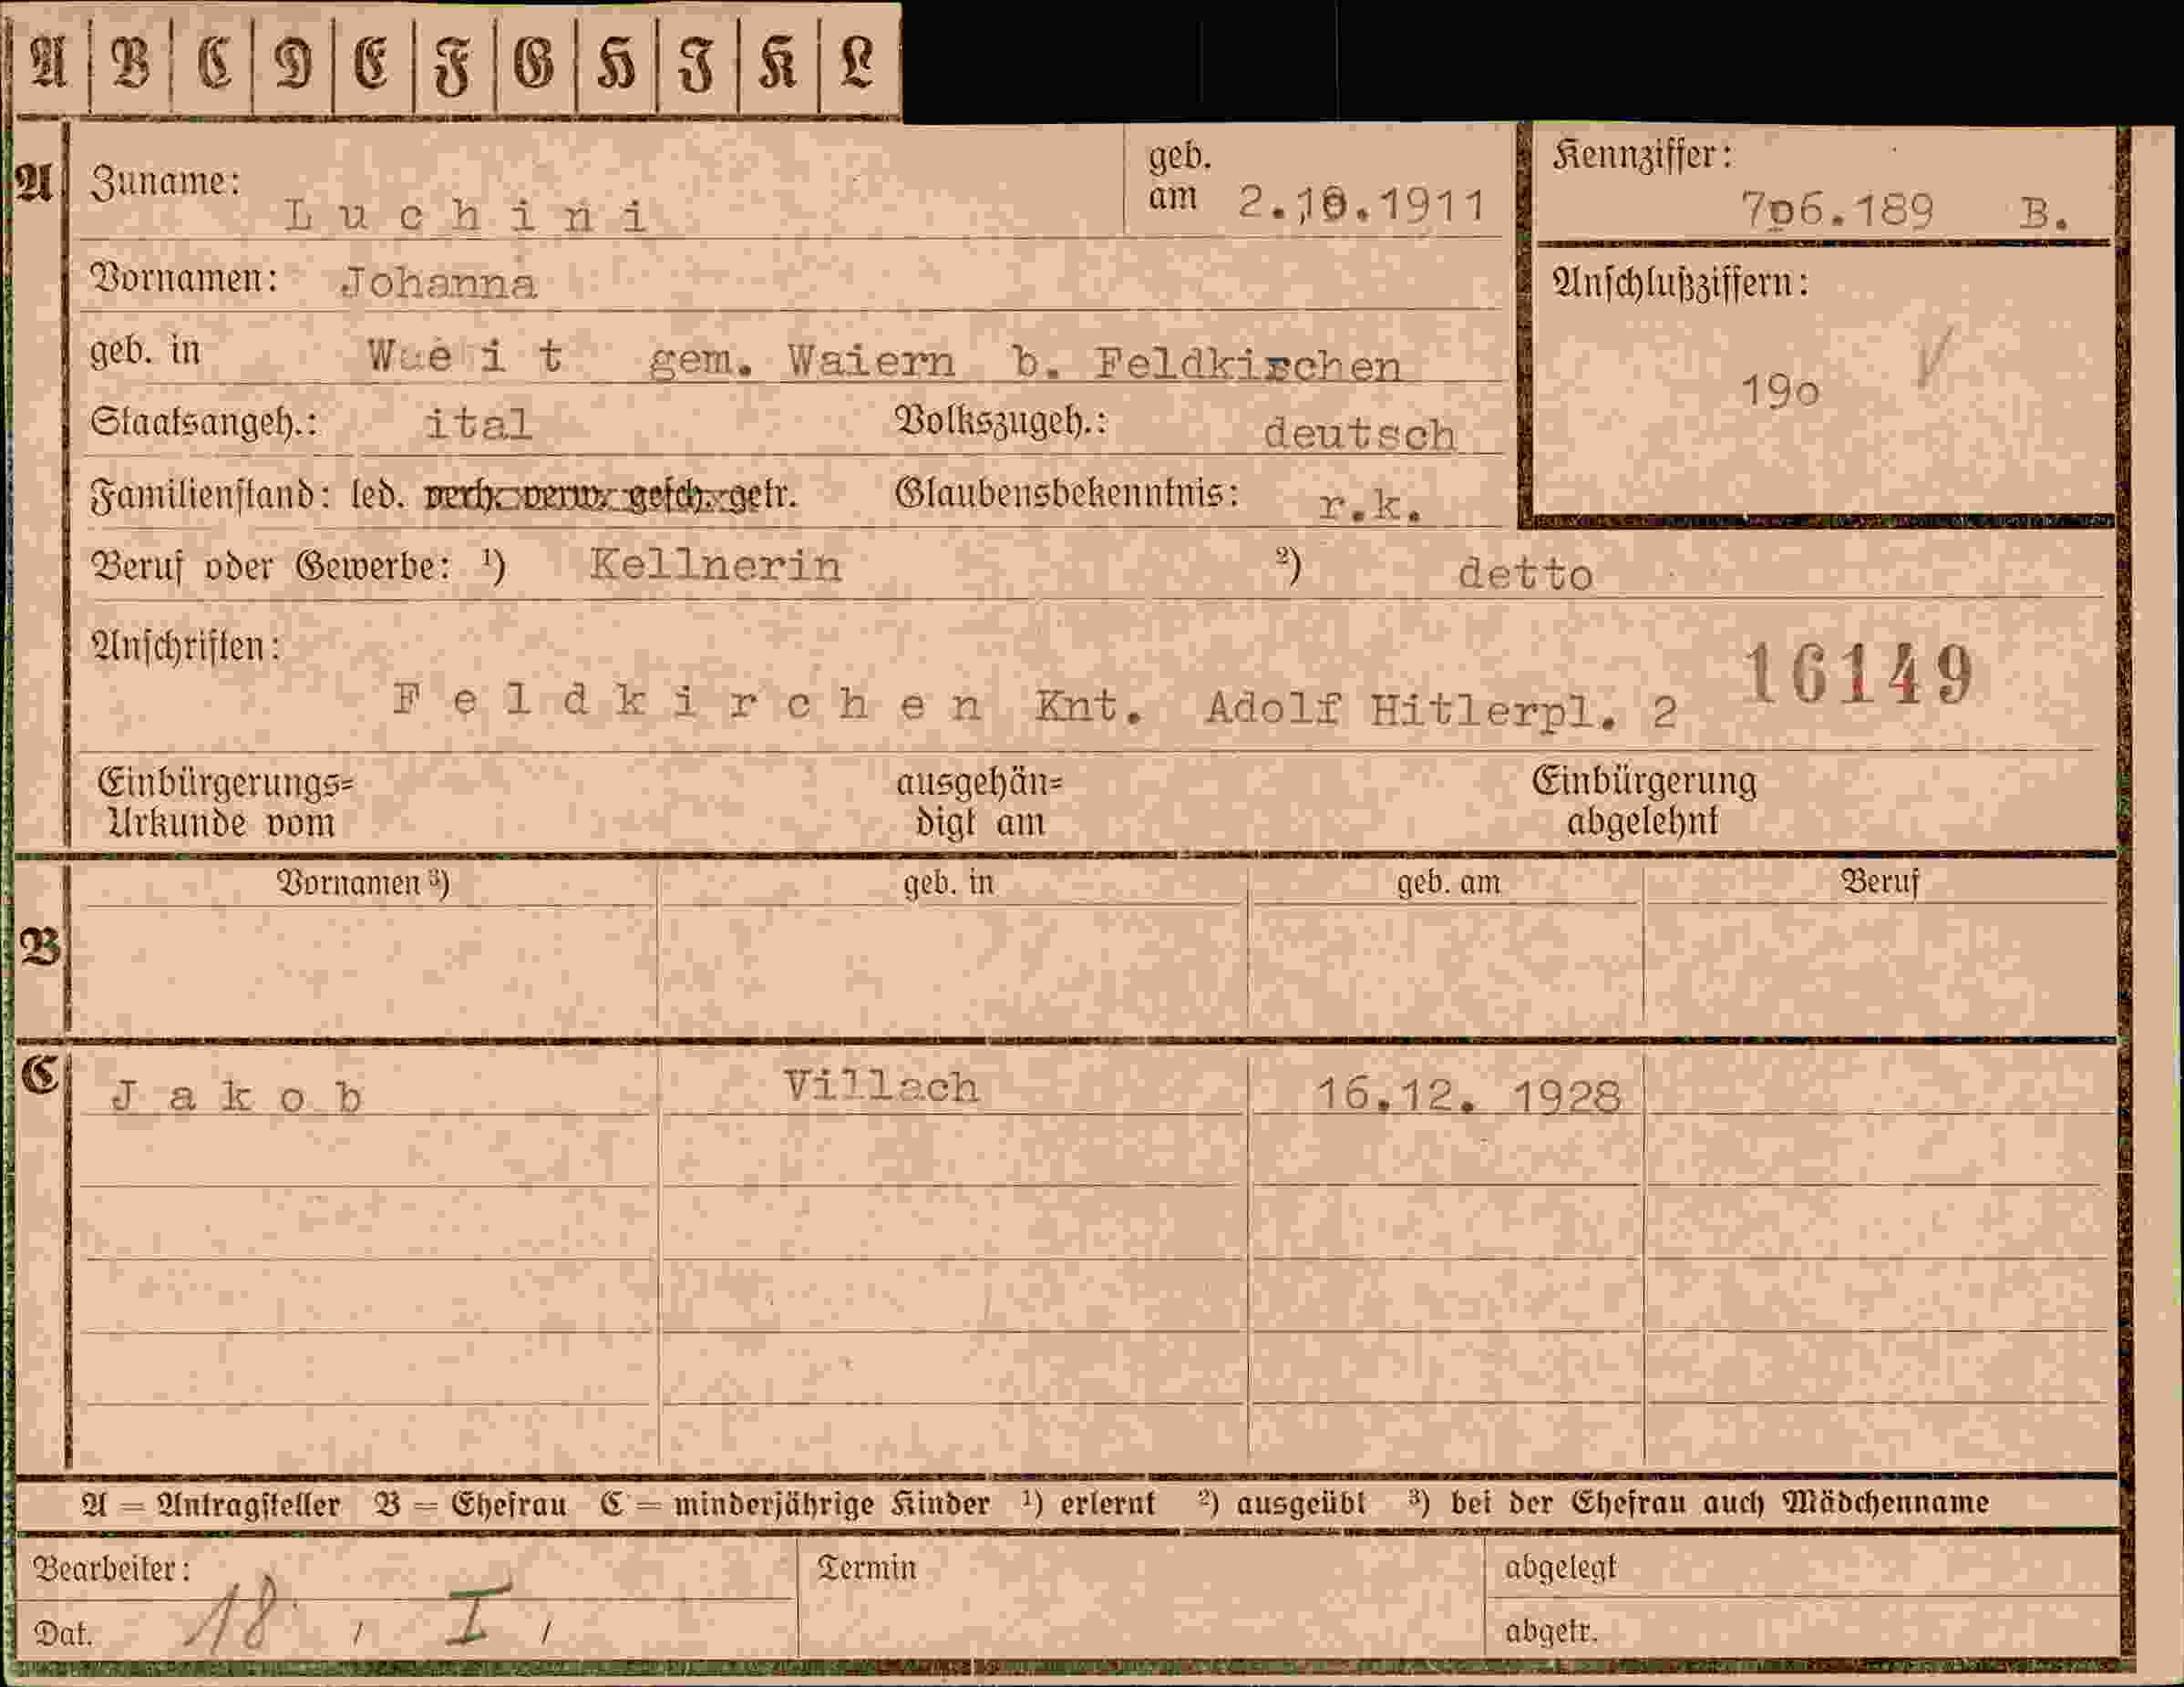 A B C D E F G H I K L
A Zuname: Luchini geb. am 2.10.1911
Kennziffer: 706.189 B.
Vornamen: Johanna
Anschlußziffern: 190
geb. in Weit gem. Waiern b. Feldkirchen
Staatsangeh.: ital Volkszugeh.: deutsch
Familienstand: led. verh. verw. gesch. getr. Glaubensbekenntnis: r.k.
Beruf oder Gewerbe: ¹) Kellnerin ²) detto
Anschriften: 16149
Feldkirchen Knt. Adolf Hitlerpl. 2
Einbürgerungs= ausgehän= Einbürgerung
Urkunde vom digt am abgelehnt
Vornamen ³) geb. in geb. am Beruf
B
C Jakob Villach 16.12. 1928
A = Antragsteller B = Ehefrau C = minderjährige Kinder ¹) erlernt ²) ausgeübt ³) bei der Ehefrau auch Mädchenname
Bearbeiter: Termin abgelegt
Dat. 18 / I / abgetr.